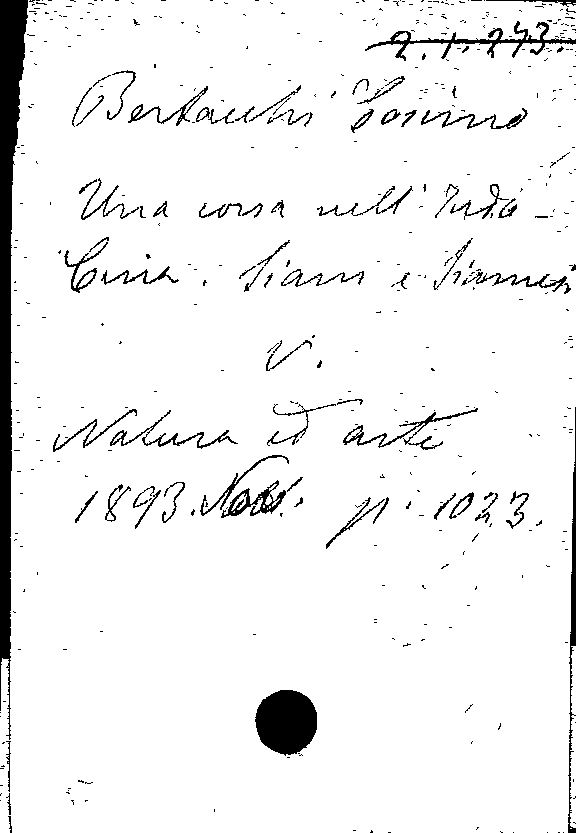 2.1.243.
Bertacchi Cosimo
Una corsa nell' Indo-
Cina. Siam e Siamesi
V.
Natura ed arte
1893. Nov. p. 1023.